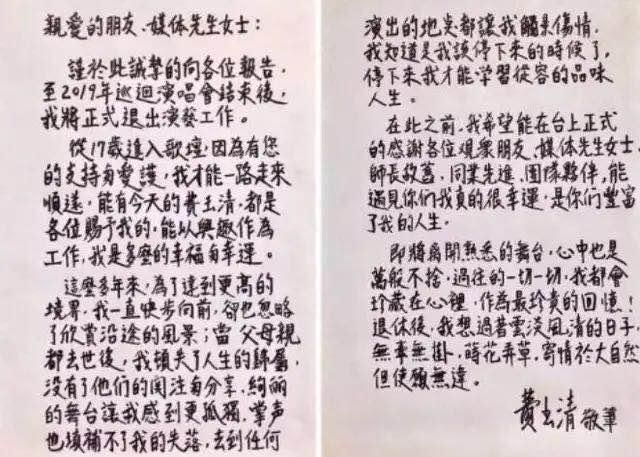 親愛的朋友、媒体先生女士：
謹於此誠摯的向各位報告，
至2019年巡迴演唱會結束後，
我將正式退出演藝工作。
從17歲進入歌壇，因為有您
的支持与愛護，我才能一路走來
順遂，能有今天的費玉清，都是
各位賜予我的，能以興趣作為
工作，我是多麼的幸福与幸運。
這麼多年來，為了達到更高的
境界，我一直快步向前，卻也忽略
了欣賞沿途的風景；當 父母親
都去世後，我頓失了人生的歸屬，
沒有了他們的関注与分享，絢麗
的舞台讓我感到更孤獨，掌声
也填補不了我的失落，去到任何
演出的地点都讓我觸景傷情，
我知道是我該停下來的時候了，
停下來我才能学習從容的品味
人生。
在此之前，我希望能在台上正式
的感謝各位观衆朋友、媒体先生女士、
師長故舊、同業先進、團隊夥伴，能
遇見你们我真的很幸運，是你们豐富
了我的人生。
即將離開熟悉的舞台，心中也是
萬般不捨，過往的一切一切，我都會
珍藏在心裡，作為最珍貴的回憶！
退休後，我想過著雲淡風清的日子，
無牽無掛，蒔花弄草，寄情於大自然
但使願無違。
費玉清 敬筆